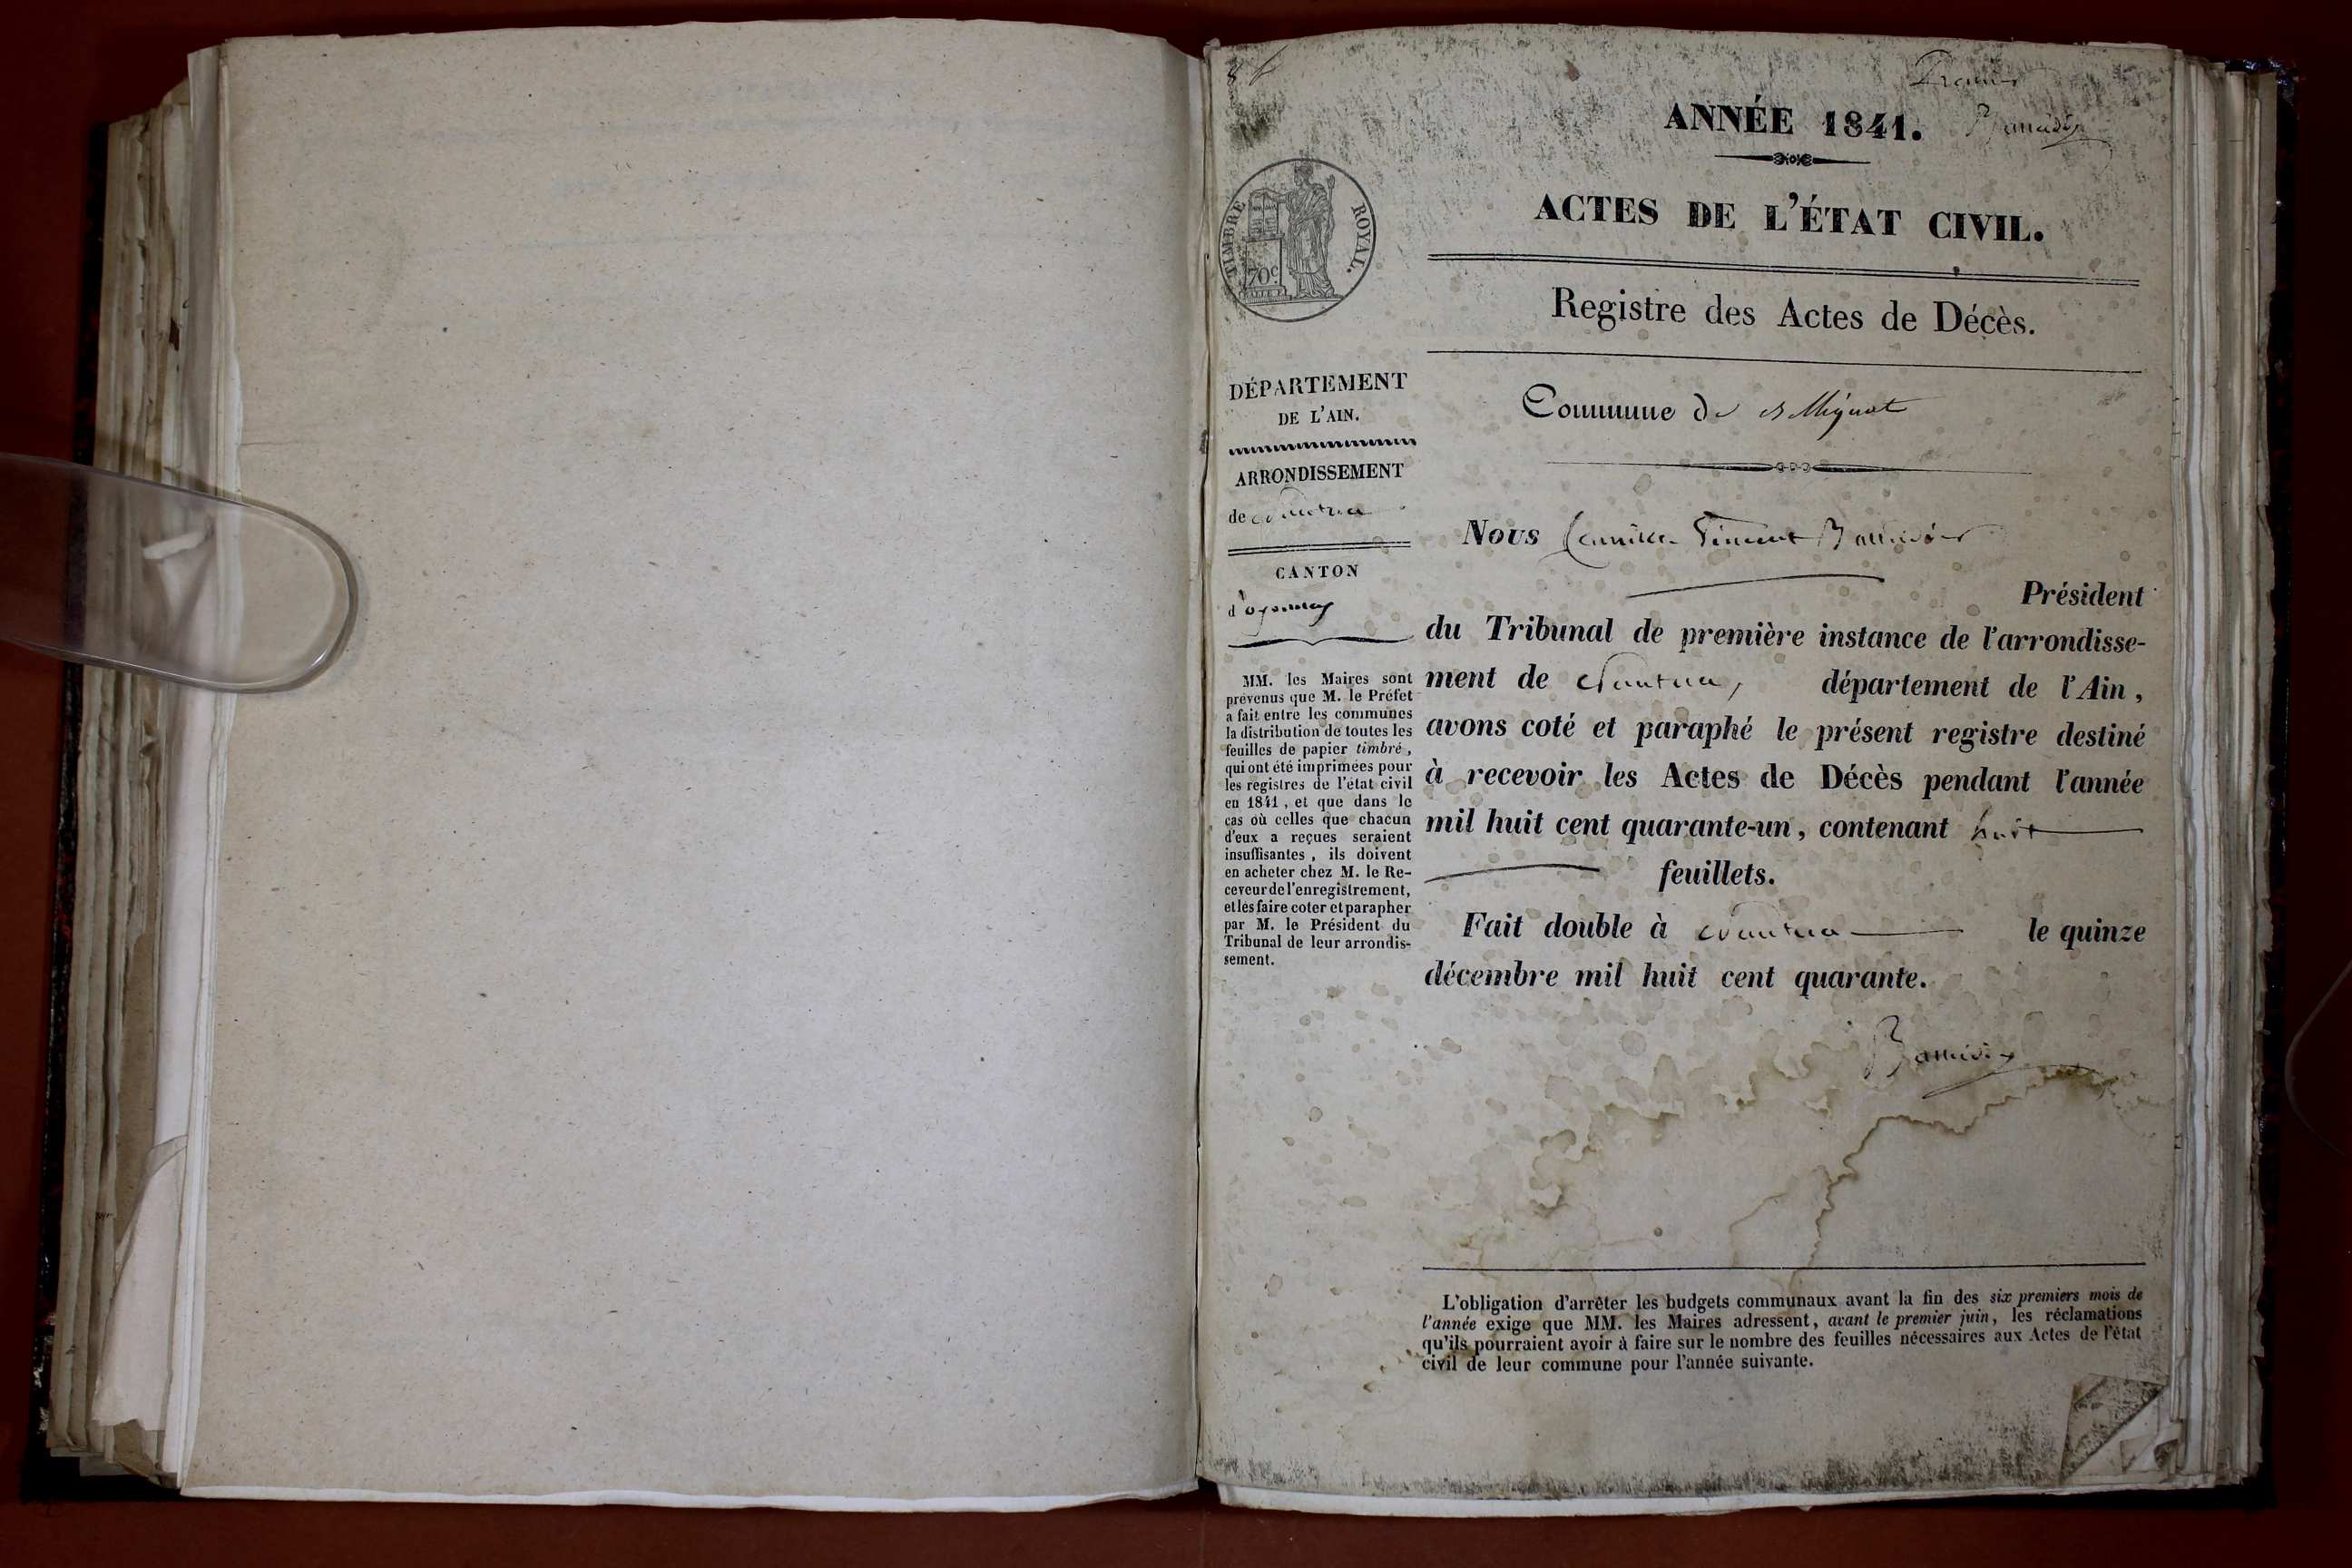 Premier
ANNÉE 1841.
ACTES DE L'ÉTAT CIVIL.
TIMBRE ROYAL.
70c
Registre des Actes de Décès.
DÉPARTEMENT
DE L'AIN.
ARRONDISSEMENT
de Nantua
CANTON
d'oyonnax
MM. les Maires sont
prévenus que M. le Préfet
a fait entre les communes
la distribution de toutes les
feuilles de papier timbré,
qui ont été imprimées pour
les registres de l'état civil
en 1841, et que dans le
cas où celles que chacun
d'eux a reçues seraient
insuffisantes, ils doivent
en acheter chez M. le Re-
ceveur de l'enregistrement,
et les faire coter et parapher
par M. le Président du
Tribunal de leur arrondis-
sement.
Commune de
Nous Camille Vincent
Président
du Tribunal de première instance de l'arrondisse-
ment de Nantua, département de l'Ain,
avons coté et paraphé le présent registre destiné
à recevoir les Actes de Décès pendant l'année
mil huit cent quarante-un, contenant huit
feuillets.
Fait double à Nantua le quinze
décembre mil huit cent quarante.
L'obligation d'arrêter les budgets communaux avant la fin des six premiers mois de
l'année exige que MM. les Maires adressent, avant le premier juin, les réclamations
qu'ils pourraient avoir à faire sur le nombre des feuilles nécessaires aux Actes de l'état
civil de leur commune pour l'année suivante.